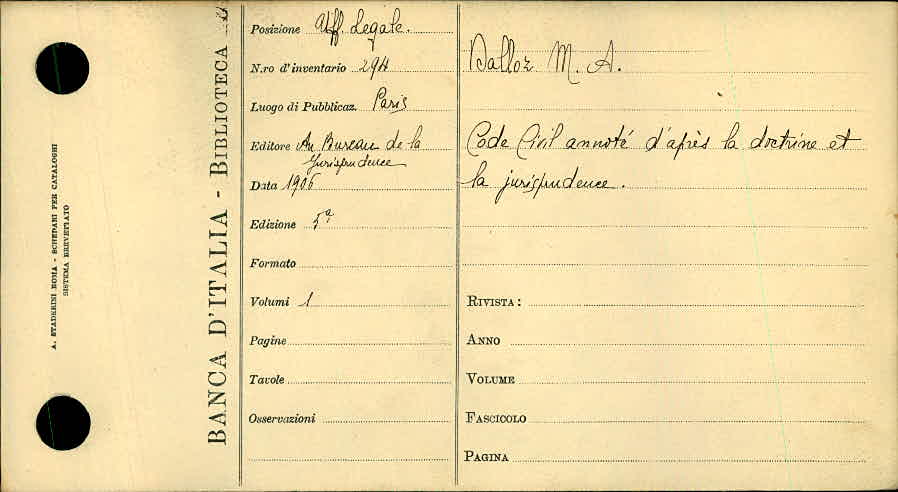 A. STADERINI ROMA - SCHEDARI PER CATALOGHI
SISTEMA BREVETTATO
BANCA D'ITALIA - BIBLIOTECA
Posizione Uff. Legale.
N.ro d'inventario 294
Luogo di Pubblicaz. Paris
Editore Au Bureau de la
Jurisprudence
Data 1906
Edizione 5ª
Formato
Volumi 1
Pagine
Tavole
Osservazioni
Dalloz M. A.
Code Civil annoté d'après la doctrine et
la jurisprudence.
RIVISTA:
ANNO
VOLUME
FASCICOLO
PAGINA